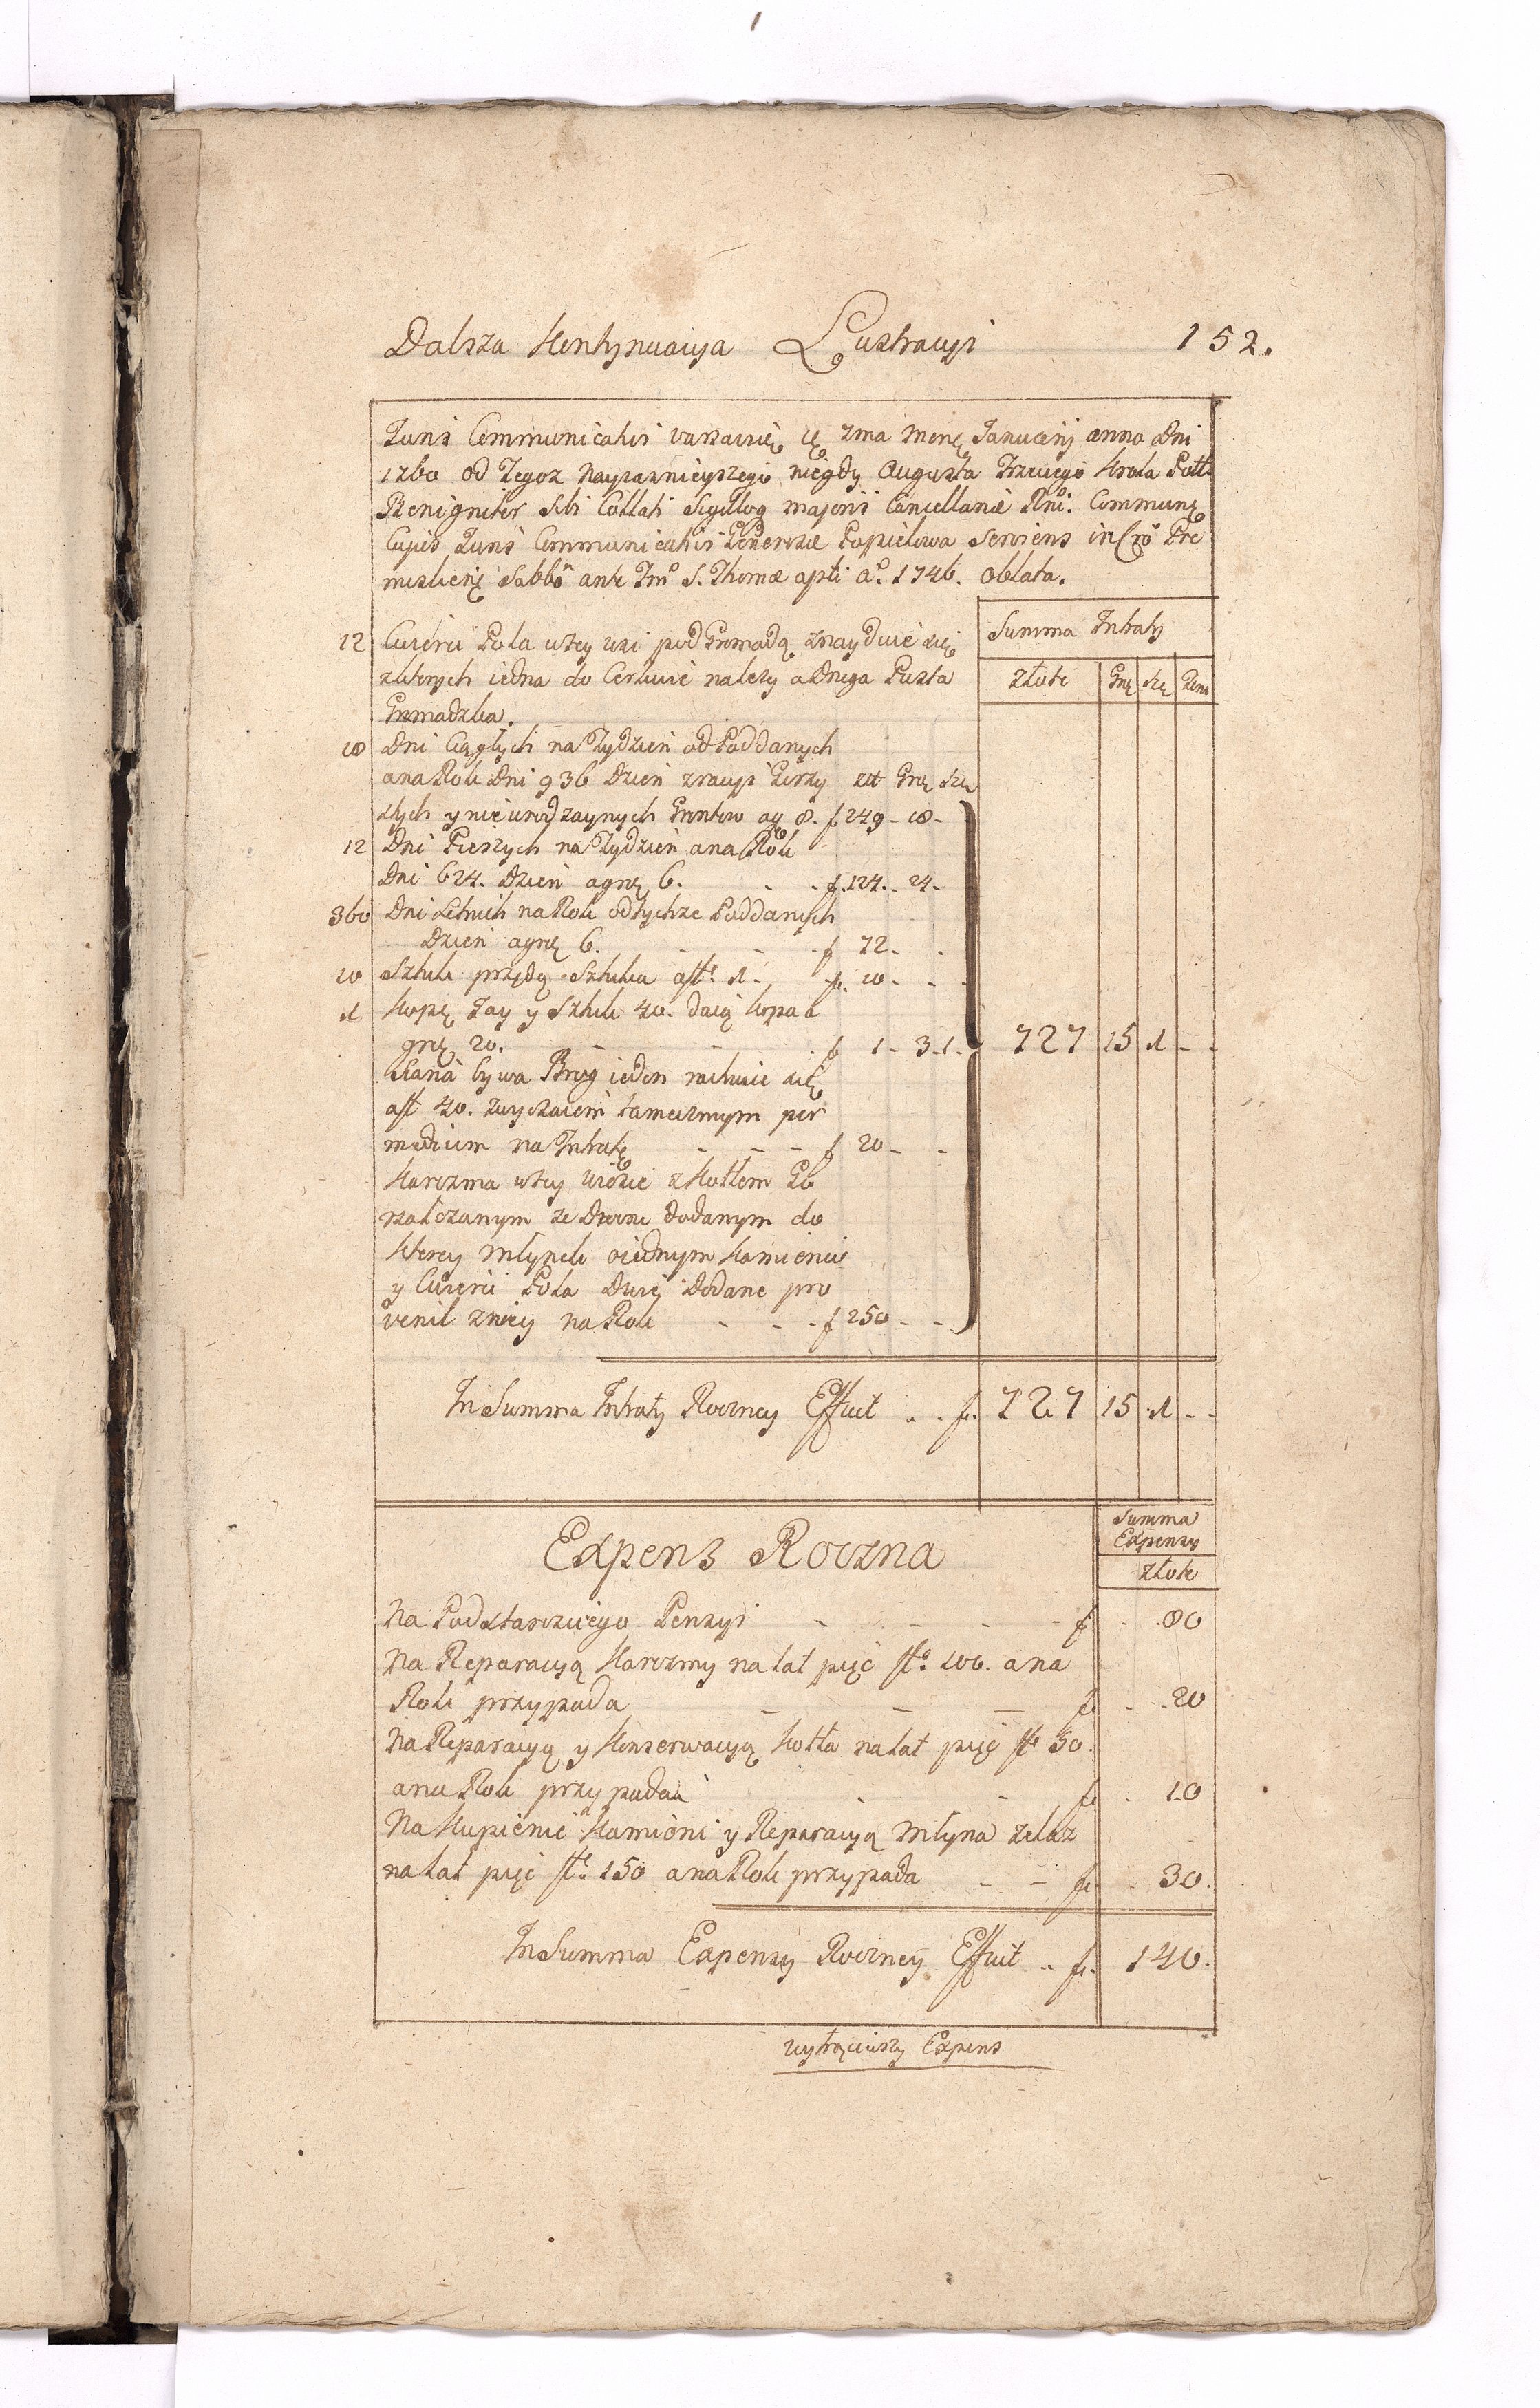 Dalsza Kontynuacya Lustracyi 152.
Juris Communicativi varsavię 7ma Menş Januarij anno Dni
1760 od Tegoz Nayjasnieyszego niegdy Augusta Trzeciego Krola Poltt
Benigniter Sibi Collati Sigillog majoris Cancellariæ Rni. Commun
Cujus Juris Communicativi Generosæ Popielowa Serviens in Cro Pre
mislienş Sabbo ante Fm S. Thomæ apti ao. 1746. Oblata.
Summa Intraty
12 Cwierci Pola wtey wsi pod Gromadą znayduie się
zktorych iedna do Cerkwie nalezy a Druga Pusta
Złote Grę Szę Den
Gromadzka.
18 Dni Ciągłych na Tydzien od Poddanych
ana Rok Dni 936 Dzien zracyi Gorzy złt Grę Sze
stych y nieurodzaynych Gruntow ag 8. f 249 - 18 -
12 Dni Pieszych na Tydzien ana Rok
Dni 624. Dzien agrę 6. - - f. 124. - 24 -
360 Dni Letnich na Rok odtychze Poddanych
Dzien agrę 6. - - f 72 - -
10 Sztuk przędą Sztuka afł. 1 - f. 10 - - -
1 Kopę Jay y Sztuk 40. daią kopa a
grę 20. - - f 1 - 3 - 1. 727 15 1 - -
Siana bywa Brog ieden rachuie się
afł 40. zwyczaiem tamecznym per
medium na Intratę - - - f 20 - -
Karczma wtey wsie z Kotłem
szalczanym ze Drewni dodanym do
Ktorey Młynek oiednym Kamieniu
y Cwierci Pola Dwię Dodane pro
venit zniey na Rok - - - f 250 - -
In Summa Intraty Roczney Effuit . . f. 727 15 1 - -
Expens Roczna
Summa
Expensy
Złote
Na Podstarosciego Pensyi - - - - f - 80
Na Reparacyą Karczmy na lat pięć fł. 100. ana
Rok przypada - - - f. - 20
Na Reparacyą y Konserwacyą Kotła na lat pięć fł 50.
ana Rok przypada - - f. - 10
Na Kupienie Kamieni y Reparacyą Młyna zelaz
na lat pięć fł. 150 ana Rok przypada - - f. - 30.
In Summa Expensy Roczney Effuit .. f. 140.
wytrąciwszy Expens